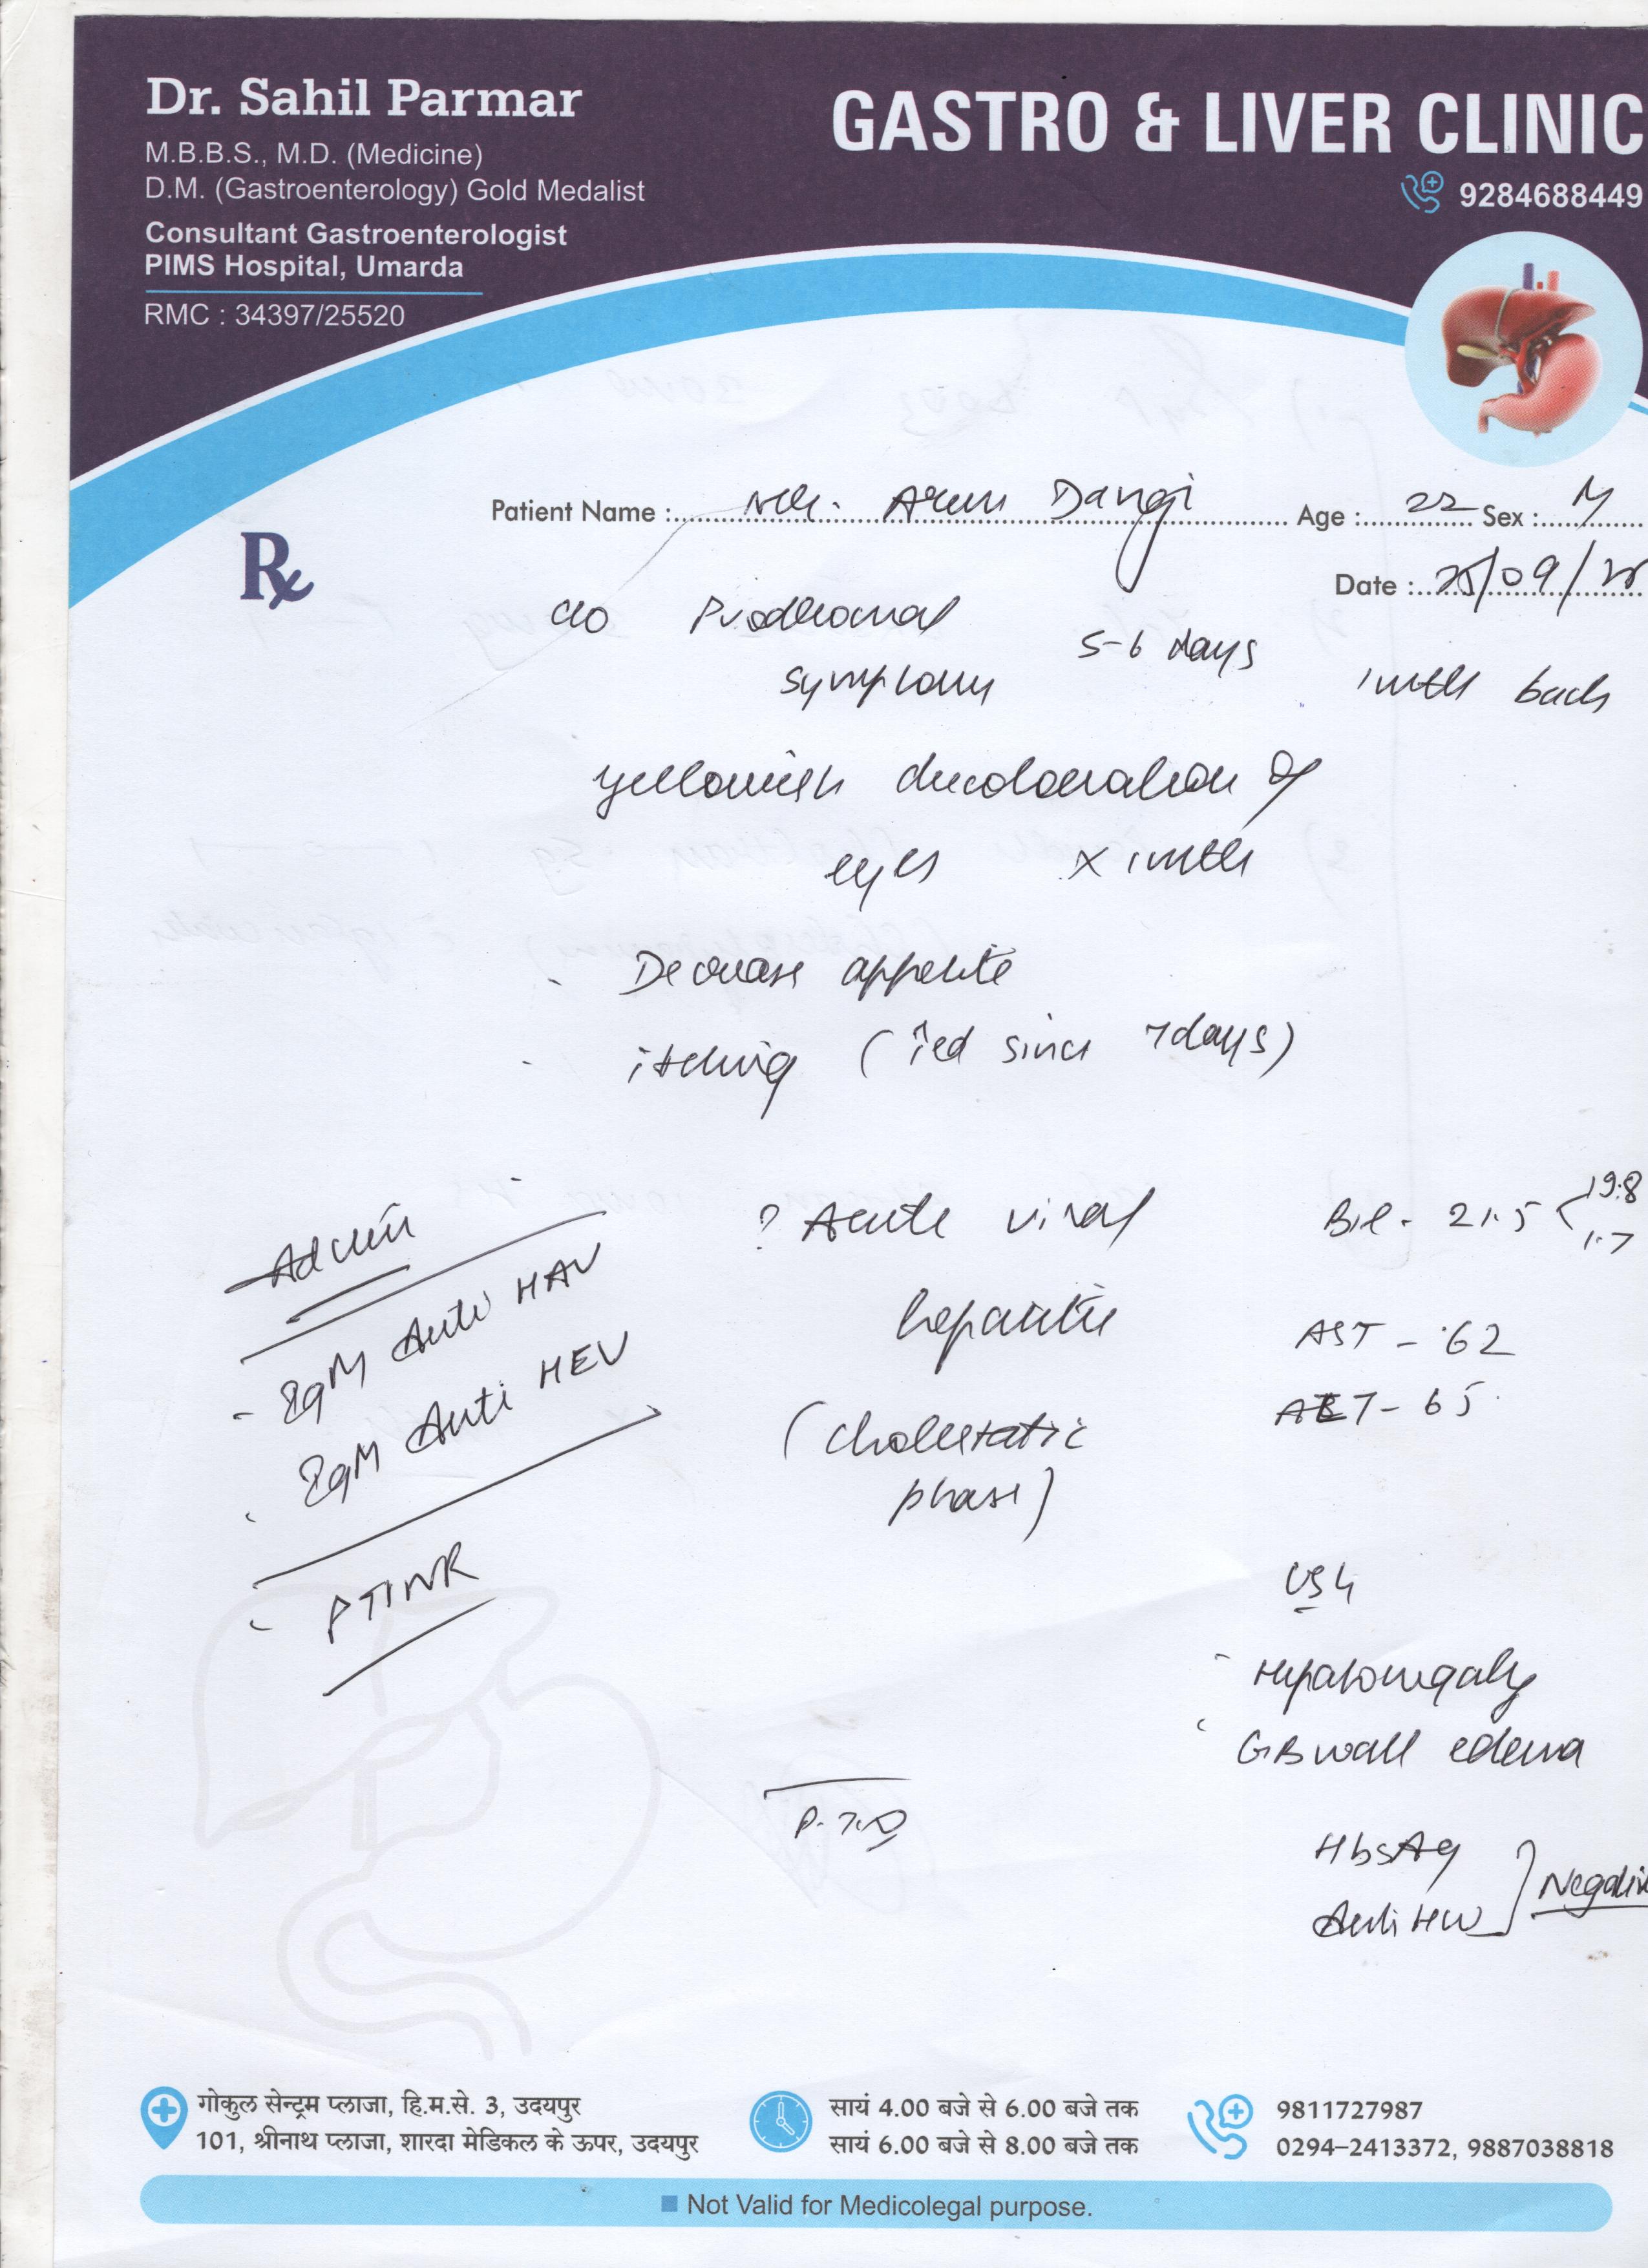 Dr. Sahil Parmar
M.B.B.S., M.D. (Medicine)
D.M. (Gastroenterology) Gold Medalist
Consultant Gastroenterologist
PIMS Hospital, Umarda
RMC : 34397/25520
GASTRO & LIVER CLINIC
9284688449
Patient Name : Mr. Arun Dangi Age : 22 Sex : M
Date : 25/09/25
Rx
c/o Prodromal
symptoms 5-6 days 1 mth back
yellowish discoloration of
eyes x 1 mth
- Decrease appetite
- itching (↑ed since 7days)
Admit
- IgM Anti HAV
- IgM Anti HEV
- PTINR
? Acute viral
hepatitis
(cholestatic
phase)
Bil - 21.5 < 19.8
1.7
AST - 62
ALT - 65
USG
- Hepatomegaly
- GB wall edema
HbsAg
Anti HCV } Negative
P.T.O
गोकुल सेन्ट्रम प्लाजा, हि.म.से. 3, उदयपुर
101, श्रीनाथ प्लाजा, शारदा मेडिकल के ऊपर, उदयपुर
सायं 4.00 बजे से 6.00 बजे तक
सायं 6.00 बजे से 8.00 बजे तक
9811727987
0294-2413372, 9887038818
Not Valid for Medicolegal purpose.